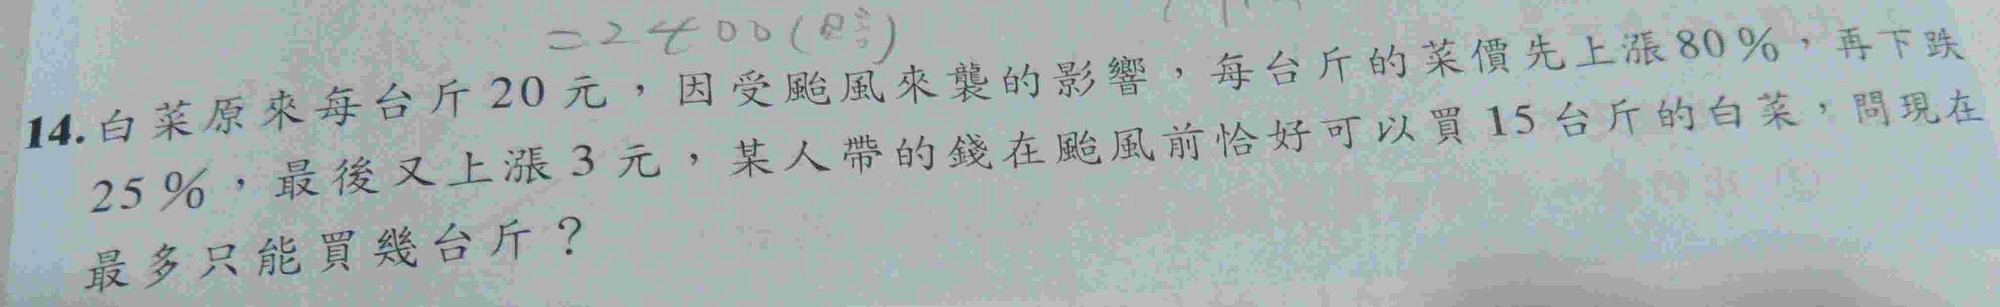 =2400(時)
14.白菜原來每台斤20元，因受颱風來襲的影響，每台斤的菜價先上漲80%，再下跌
25%，最後又上漲3元，某人帶的錢在颱風前恰好可以買15台斤的白菜，問現在
最多只能買幾台斤？